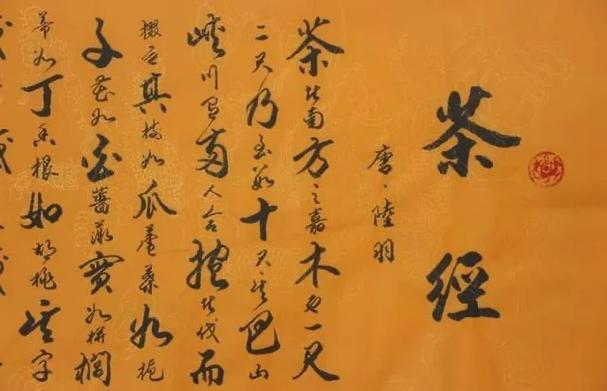 茶經
唐·陸羽
茶者南方之嘉木也一尺
二尺乃至數十尺其巴山
峽川有兩人合抱者伐而
掇之其樹如瓜蘆葉如梔
子花如白薔薇實如栟櫚
蒂如丁香根如胡桃其字